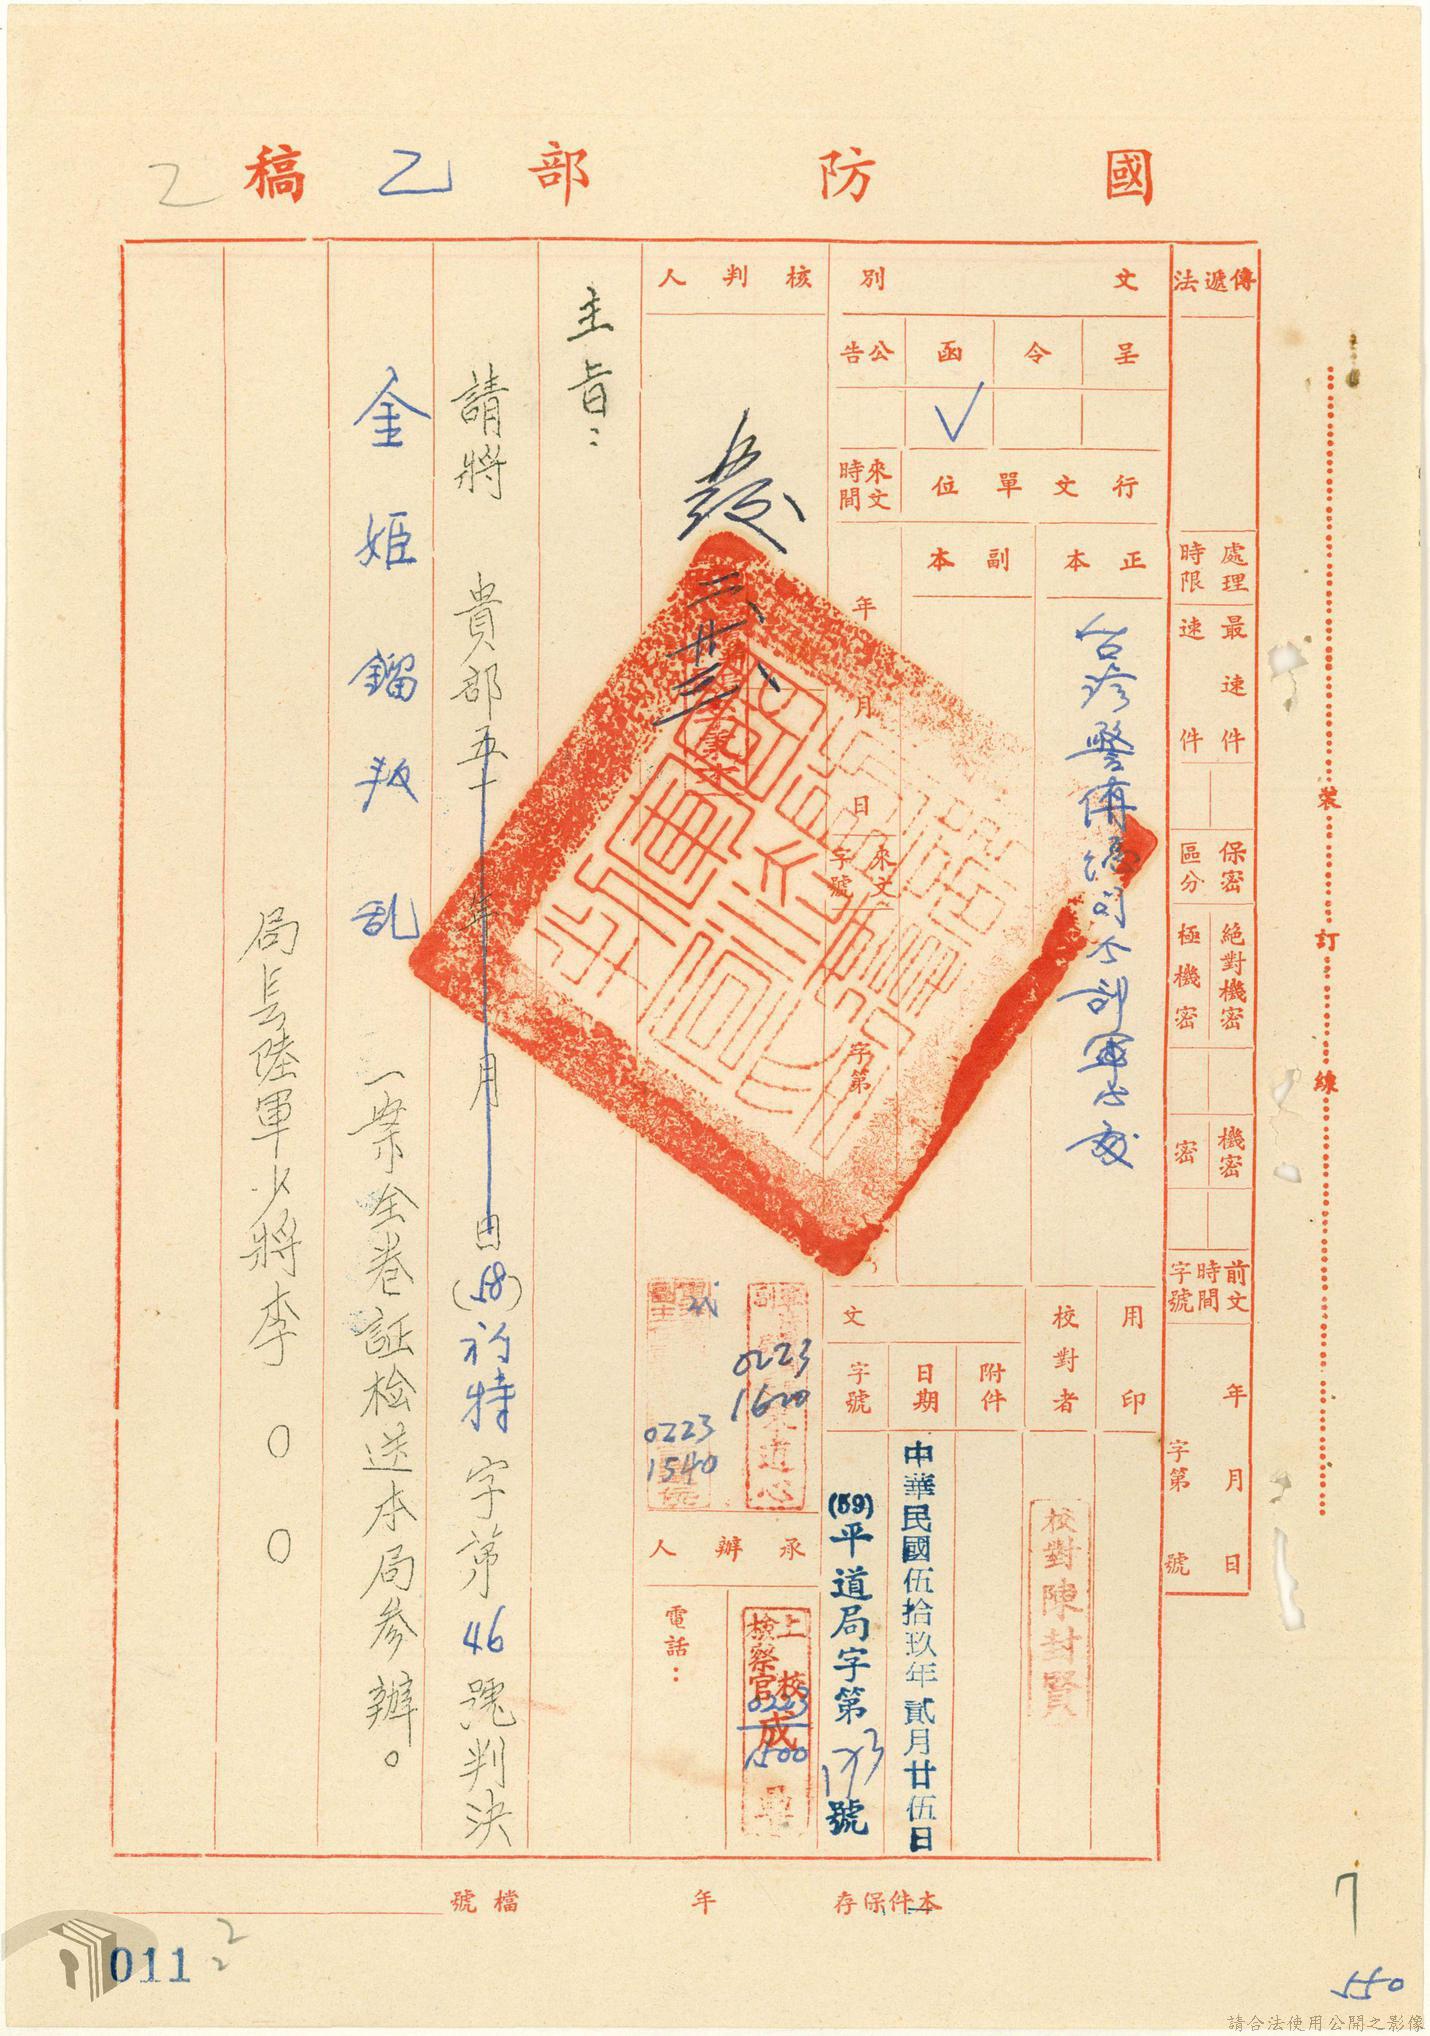 國防部乙稿
乙
傳遞法
處理時限
最速件
速件
保密區分
絕對機密
極機密
機密
密
前文時間字號
年月日
字第號
文別
呈
令
函
公告
✓
行文單位
來文時間
正本
副本
年月日
來文字號
字第
台灣警備總司令部軍法處
用印
校對者
校對陳封賢
文
附件
日期
字號
中華民國伍拾玖年貳月廿伍日
(59)平道局字第173號
核判人
0223
1620
0223
1540
承辦人
上校檢察官成
0223
1500
電話：
主旨：
請將 貴部五十年月日(58)初特字第46號判決
金姬鎦叛乱一案全卷証检送本局参辦。
局長陸軍少將李〇〇
裝訂線
本件保存年
檔號
011
2
2
7
550
請合法使用公開之影像